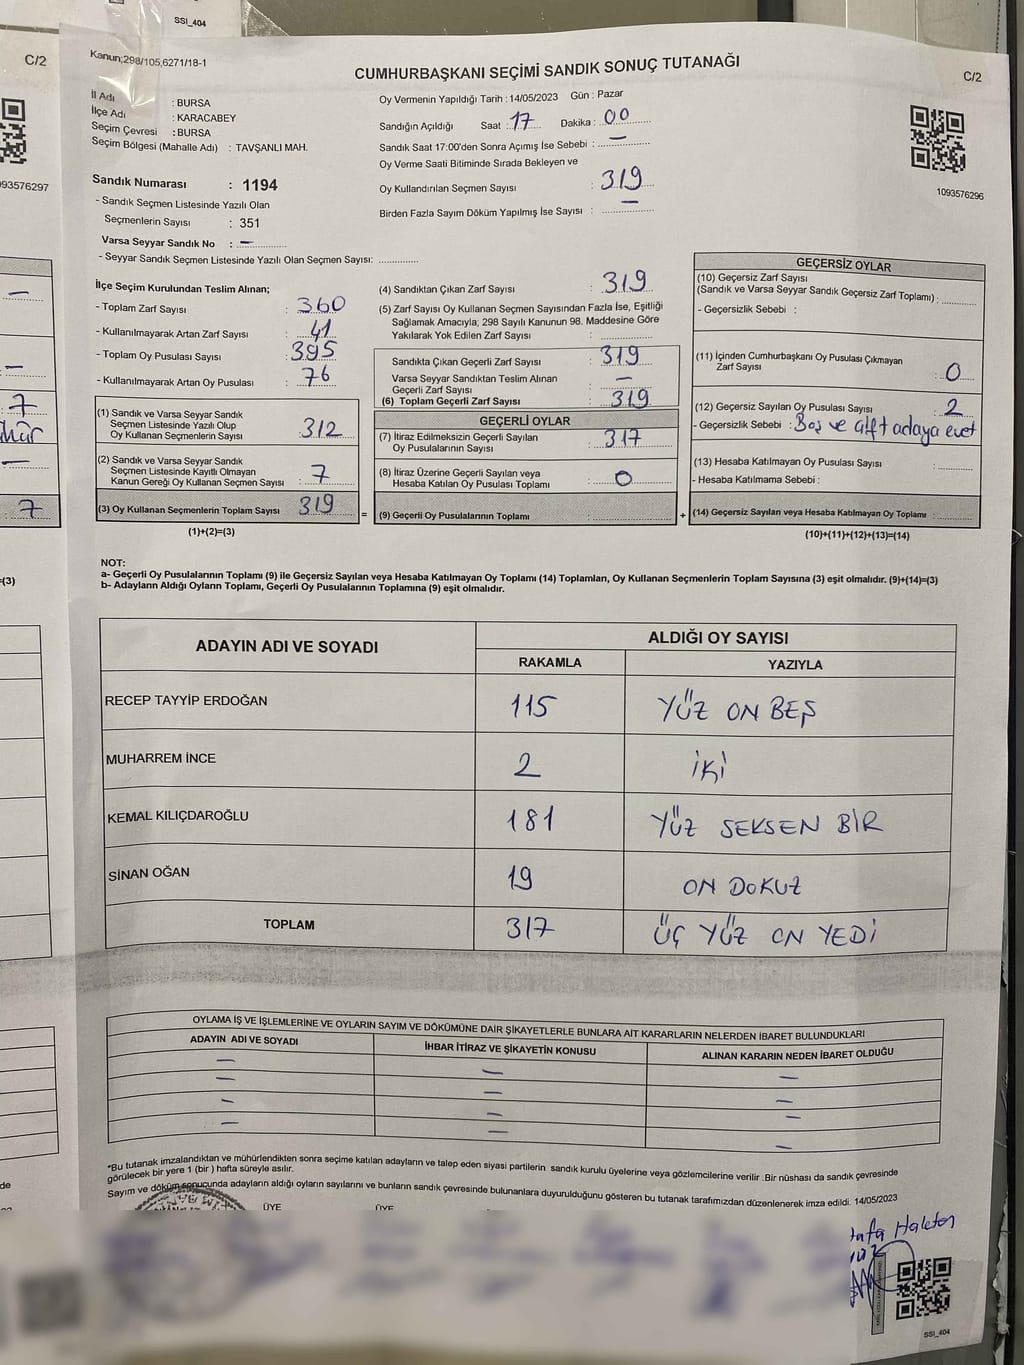 SSI_404
C/2
Kanun;298/105,6271/18-1
CUMHURBAŞKANI SEÇİMİ SANDIK SONUÇ TUTANAĞI
C/2
İl Adı : BURSA
İlçe Adı : KARACABEY
Seçim Çevresi : BURSA
Seçim Bölgesi (Mahalle Adı) : TAVŞANLI MAH.
Oy Vermenin Yapıldığı Tarih : 14/05/2023 Gün : Pazar
Sandığın Açıldığı Saat : 17 Dakika : 00
Sandık Saat 17:00'den Sonra Açımış İse Sebebi : —
Oy Verme Saati Bitiminde Sırada Bekleyen ve
Oy Kullandırılan Seçmen Sayısı : 319
Birden Fazla Sayım Döküm Yapılmış İse Sayısı : —
093576297
1093576296
Sandık Numarası : 1194
- Sandık Seçmen Listesinde Yazılı Olan
Seçmenlerin Sayısı : 351
Varsa Seyyar Sandık No : —
- Seyyar Sandık Seçmen Listesinde Yazılı Olan Seçmen Sayısı:
İlçe Seçim Kurulundan Teslim Alınan;
- Toplam Zarf Sayısı : 360
- Kullanılmayarak Artan Zarf Sayısı : 41
- Toplam Oy Pusulası Sayısı : 395
- Kullanılmayarak Artan Oy Pusulası : 76
(1) Sandık ve Varsa Seyyar Sandık
Seçmen Listesinde Yazılı Olup
Oy Kullanan Seçmenlerin Sayısı : 312
(2) Sandık ve Varsa Seyyar Sandık
Seçmen Listesinde Kayıtlı Olmayan
Kanun Gereği Oy Kullanan Seçmen Sayısı : 7
(3) Oy Kullanan Seçmenlerin Toplam Sayısı : 319
(1)+(2)=(3)
(4) Sandıktan Çıkan Zarf Sayısı : 319
(5) Zarf Sayısı Oy Kullanan Seçmen Sayısından Fazla İse, Eşitliği
Sağlamak Amacıyla; 298 Sayılı Kanunun 98. Maddesine Göre
Yakılarak Yok Edilen Zarf Sayısı :
Sandıkta Çıkan Geçerli Zarf Sayısı : 319
Varsa Seyyar Sandıktan Teslim Alınan
Geçerli Zarf Sayısı : —
(6) Toplam Geçerli Zarf Sayısı : 319
GEÇERLİ OYLAR
(7) İtiraz Edilmeksizin Geçerli Sayılan
Oy Pusulalarının Sayısı : 317
(8) İtiraz Üzerine Geçerli Sayılan veya
Hesaba Katılan Oy Pusulası Toplamı : 0
= (9) Geçerli Oy Pusulalarının Toplamı :
GEÇERSİZ OYLAR
(10) Geçersiz Zarf Sayısı
(Sandık ve Varsa Seyyar Sandık Geçersiz Zarf Toplamı) :
- Geçersizlik Sebebi :
(11) İçinden Cumhurbaşkanı Oy Pusulası Çıkmayan
Zarf Sayısı : 0
(12) Geçersiz Sayılan Oy Pusulası Sayısı : 2
- Geçersizlik Sebebi : Boş ve çift adaya evet
(13) Hesaba Katılmayan Oy Pusulası Sayısı :
- Hesaba Katılmama Sebebi :
+ (14) Geçersiz Sayılan veya Hesaba Katılmayan Oy Toplamı :
(10)+(11)+(12)+(13)=(14)
7
—
7
=(3)
NOT:
a- Geçerli Oy Pusulalarının Toplamı (9) ile Geçersiz Sayılan veya Hesaba Katılmayan Oy Toplamı (14) Toplamları, Oy Kullanan Seçmenlerin Toplam Sayısına (3) eşit olmalıdır. (9)+(14)=(3)
b- Adayların Aldığı Oyların Toplamı, Geçerli Oy Pusulalarının Toplamına (9) eşit olmalıdır.
ADAYIN ADI VE SOYADI
ALDIĞI OY SAYISI
RAKAMLA YAZIYLA
RECEP TAYYİP ERDOĞAN 115 YÜZ ON BEŞ
MUHARREM İNCE 2 İKİ
KEMAL KILIÇDAROĞLU 181 YÜZ SEKSEN BİR
SİNAN OĞAN 19 ON DOKUZ
TOPLAM 317 ÜÇ YÜZ ON YEDİ
OYLAMA İŞ VE İŞLEMLERİNE VE OYLARIN SAYIM VE DÖKÜMÜNE DAİR ŞİKAYETLERLE BUNLARA AİT KARARLARIN NELERDEN İBARET BULUNDUKLARI
ADAYIN ADI VE SOYADI İHBAR İTİRAZ VE ŞİKAYETİN KONUSU ALINAN KARARIN NEDEN İBARET OLDUĞU
— — —
— — —
— — —
— — —
*Bu tutanak imzalandıktan ve mühürlendikten sonra seçime katılan adayların ve talep eden siyasi partilerin sandık kurulu üyelerine veya gözlemcilerine verilir .Bir nüshası da sandık çevresinde
görülecek bir yere 1 (bir ) hafta süreyle asılır.
Sayım ve döküm sonucunda adayların aldığı oyların sayılarını ve bunların sandık çevresinde bulunanlara duyurulduğunu gösteren bu tutanak tarafımızdan düzenlenerek imza edildi. 14/05/2023
ÜYE ÜYE
SSI_404